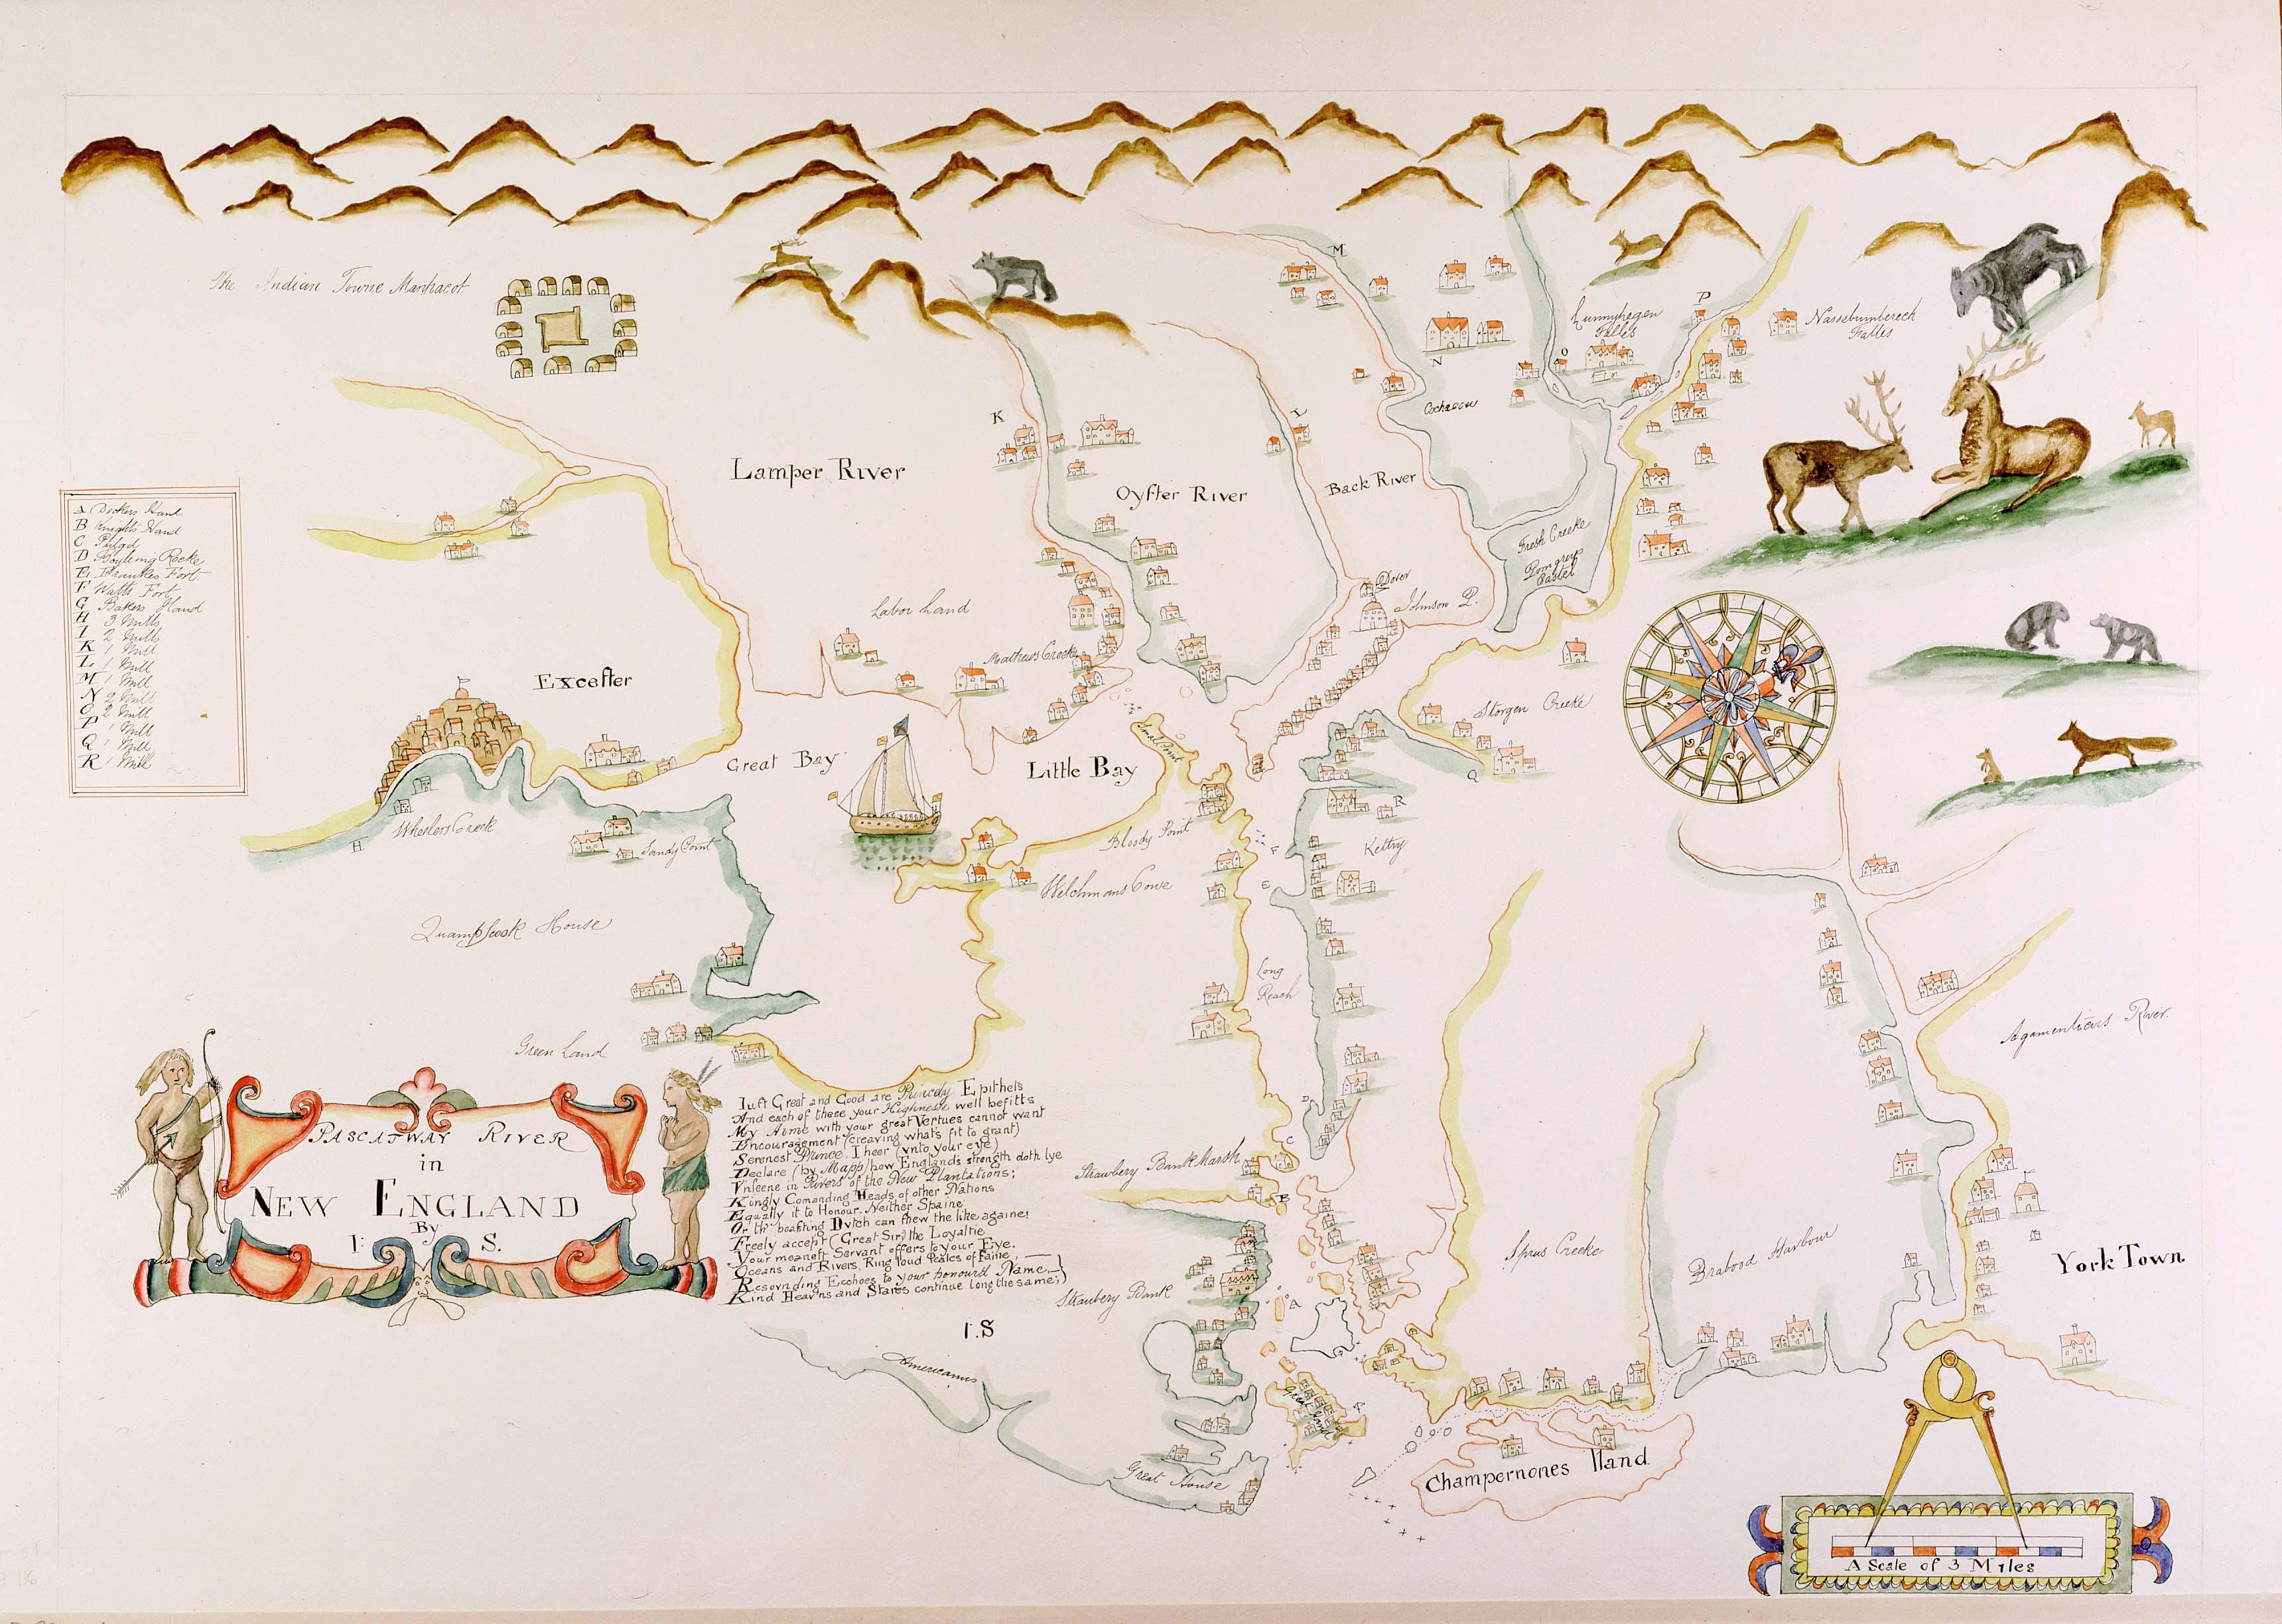 The Indian Towne Manhacot
M
P
Lunnyhegen
Falles
Nassebumbereck
Falles
O
N
Cochaeco
K
L
Lamper River
Oyster River
Back River
Fresh Creeke
A Dockers Iland
B Knights Iland
C Pulgd
D Boyleing Rocke
E Frankes Fort
F Watts Fort
G Bakers Iland
H 3 Mills
I 2 Mills
K 1 Mill
L 1 Mill
M 1 Mill
N 2 Mill
O 2 Mill
P 1 Mill
Q 1 Mill
R 1 Mill
Dover
Johnson P.
Labor Land
Mathews Creeke
Excester
Storgen Creeke
Great Bay
Little Bay
Q
R
Bloody Point
Wheelers Creek
H
Sandy Point
Kettry
F
E
Welchmans Cowe
Quampscook House
Long
Reach
Agamenticus River
Green Land
D
C
B
A
PASCATWAY RIVER
in
NEW ENGLAND
By
I: S.
Iust Great and Good are Princely Epithets
And each of these your Highnesse well befitts
My Aime with your great Vertues cannot want
Encouragement (creaving what's fit to grant)
Serenest Prince. I heer (vnto your eye)
Declare (by Mapp) how Englands strength doth lye
Vnseene in Rivers of the New Plantations;
Kingly Comanding Heads of other Nations
Equally it to Honour. Neither Spaine
Or th' boasting Dvtch can shew the like againe;
Freely accept (Great Sir) the Loyaltie
Your moanest Servant offers to your Eye.
Oceans and Rivers, Ring loud Peales of Faine,
Resovnding Ecchoes to your honour'd Name
Kind Heav'ns and Stares continue long the same;
I.S
Strawbery Bank Marsh
Straubery Bank
Sprus Creeke
Brabood Harbour
York Town
Americanus
Great Iland
Great House
Champernones Iland
A Scale of 3 Myles